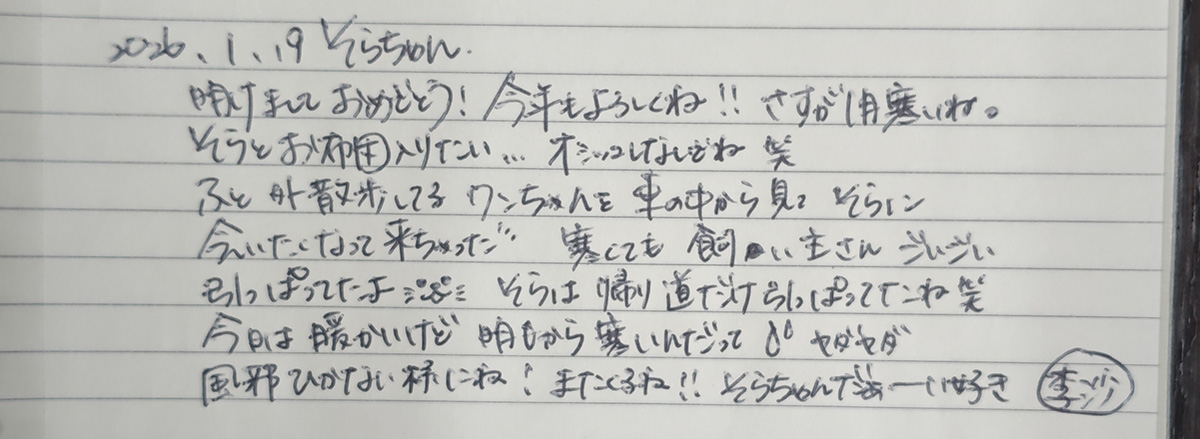 2026.1.19 そらちゃん.
明けましておめでとう! 今年もよろしくね!! さすがに寒いね。
そらとお布団入りたい… オシッコしないでね 笑
ふと外散歩してるワンちゃんを車の中から見て そらに
会いたくなって来ちゃった 寒くても飼い主さん ぐいぐい
引っぱってたよ そらは帰り道だけ引っぱってたね 笑
今日は暖かいけど 明日から寒いんだって ヤダヤダ
風邪ひかない様にね! またくるね!! そらちゃんだぁーい好き